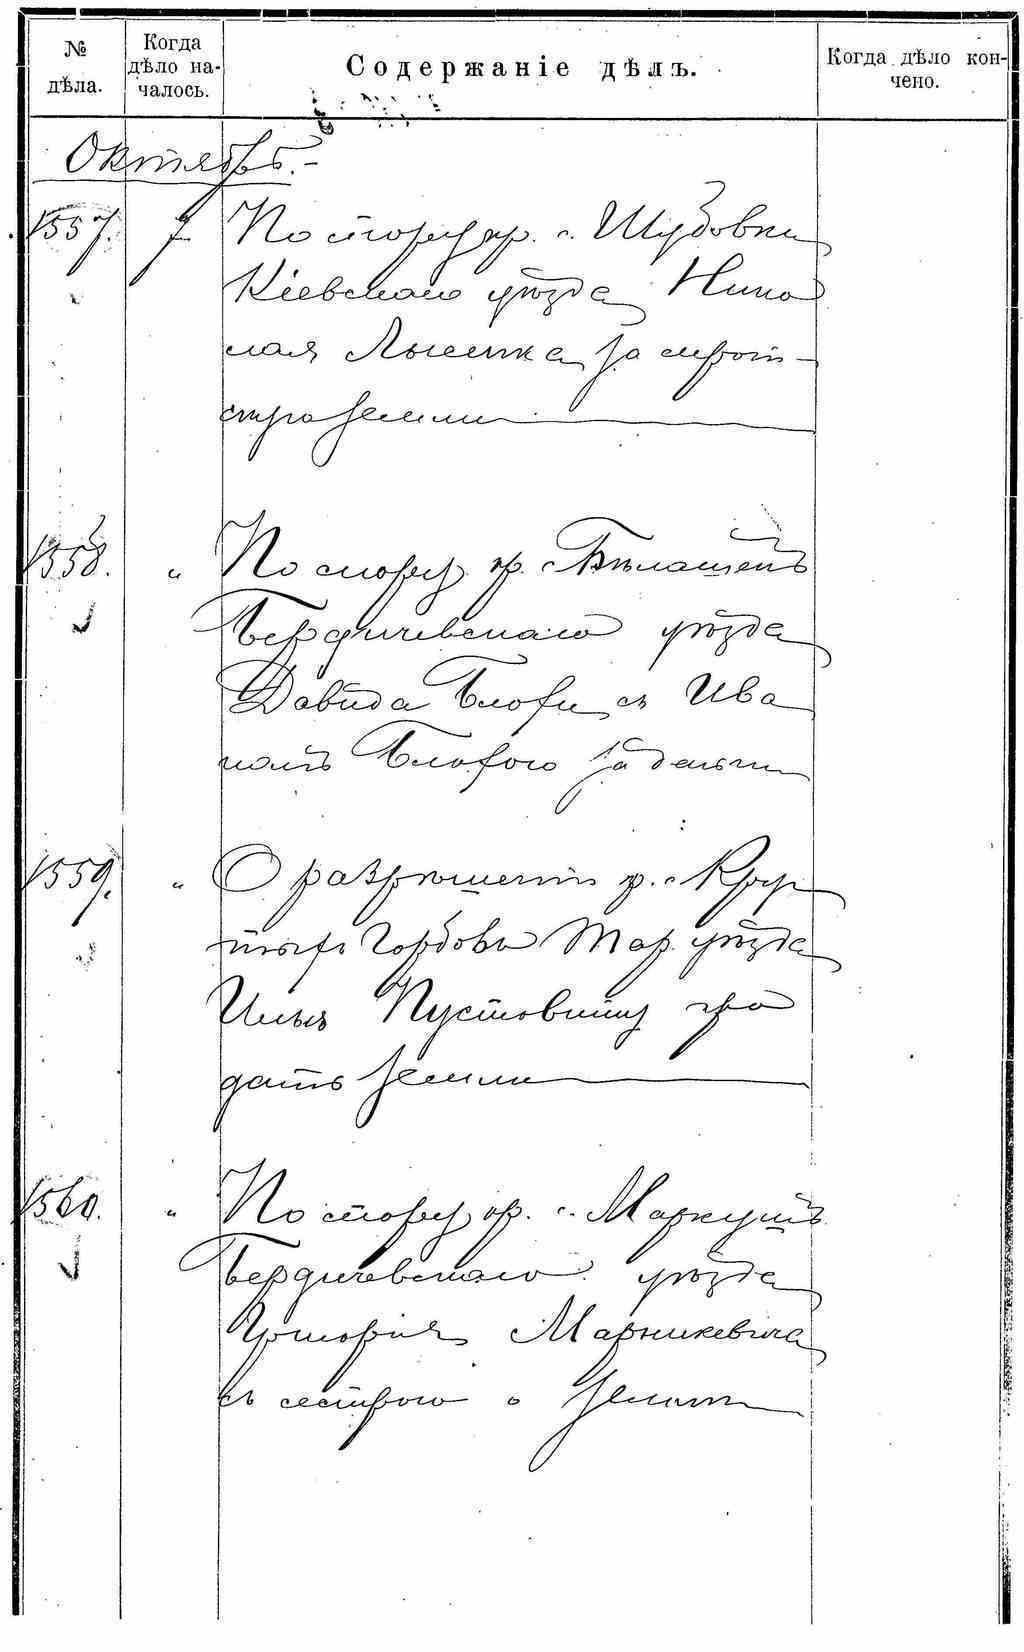 № дѣла.
Когда дѣло на-
чалось.
Содержаніе дѣлъ.
Когда дѣло кон-
чено.
Октябрь.
1557. 7 По спору кр. с. Шубовки
Кіевскаго уѣзда Нико
лая Лысенка за
земли
1558. " По спору кр. с. Бѣлашекъ
Бердичевскаго уѣзда
Давида съ Ива
номъ за деньги
1559. " О разрѣшеніи кр. с. Кру
тыхъ Горбовъ Тар. уѣзда
Ильѣ Пустовиту про
дать земли
1560. " По спору кр. с. Маркушъ
Бердичевскаго уѣзда
Григорія Марцикевича
съ сестрою о землѣ